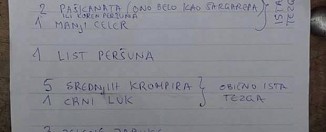 2 PAŠKANATA (ONO BELO KAO ŠARGAREPA
ILI KOREN PERŠUNA)
1 MANJI CELER
ISTA
TEZGA
1 LIST PERŠUNA
5 SREDNJIH KROMPIRA
1 CRNI LUK
OBIČNO ISTA
TEZGA